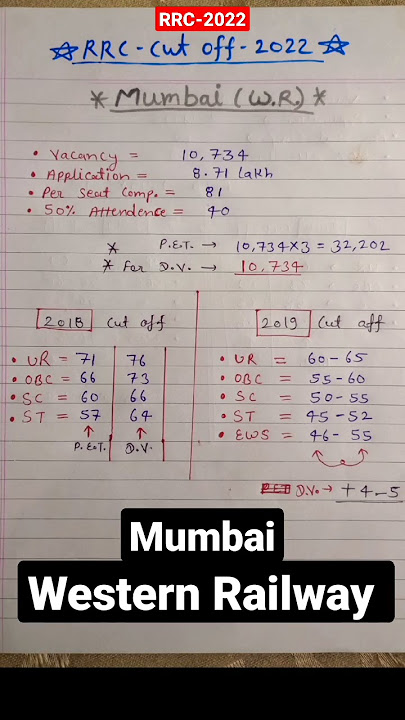 RRC-2022
☆RRC-Cut off-2022☆
* Mumbai (W.R.) *
• Vacancy = 10,734
• Application = 8.71 lakh
• Per Seat Comp. = 81
• 50% Attendence = 40
* P.E.T. → 10,734×3 = 32,202
* For D.V. → 10,734
2018 Cut off
• UR = 71 76
• OBC = 66 73
• SC = 60 66
• ST = 57 64
↑ ↑
P.E.T. D.V.
2019 Cut off
• UR = 60-65
• OBC = 55-60
• SC = 50-55
• ST = 45-52
• EWS = 46-55
D.V. → +4-5
Mumbai
Western Railway